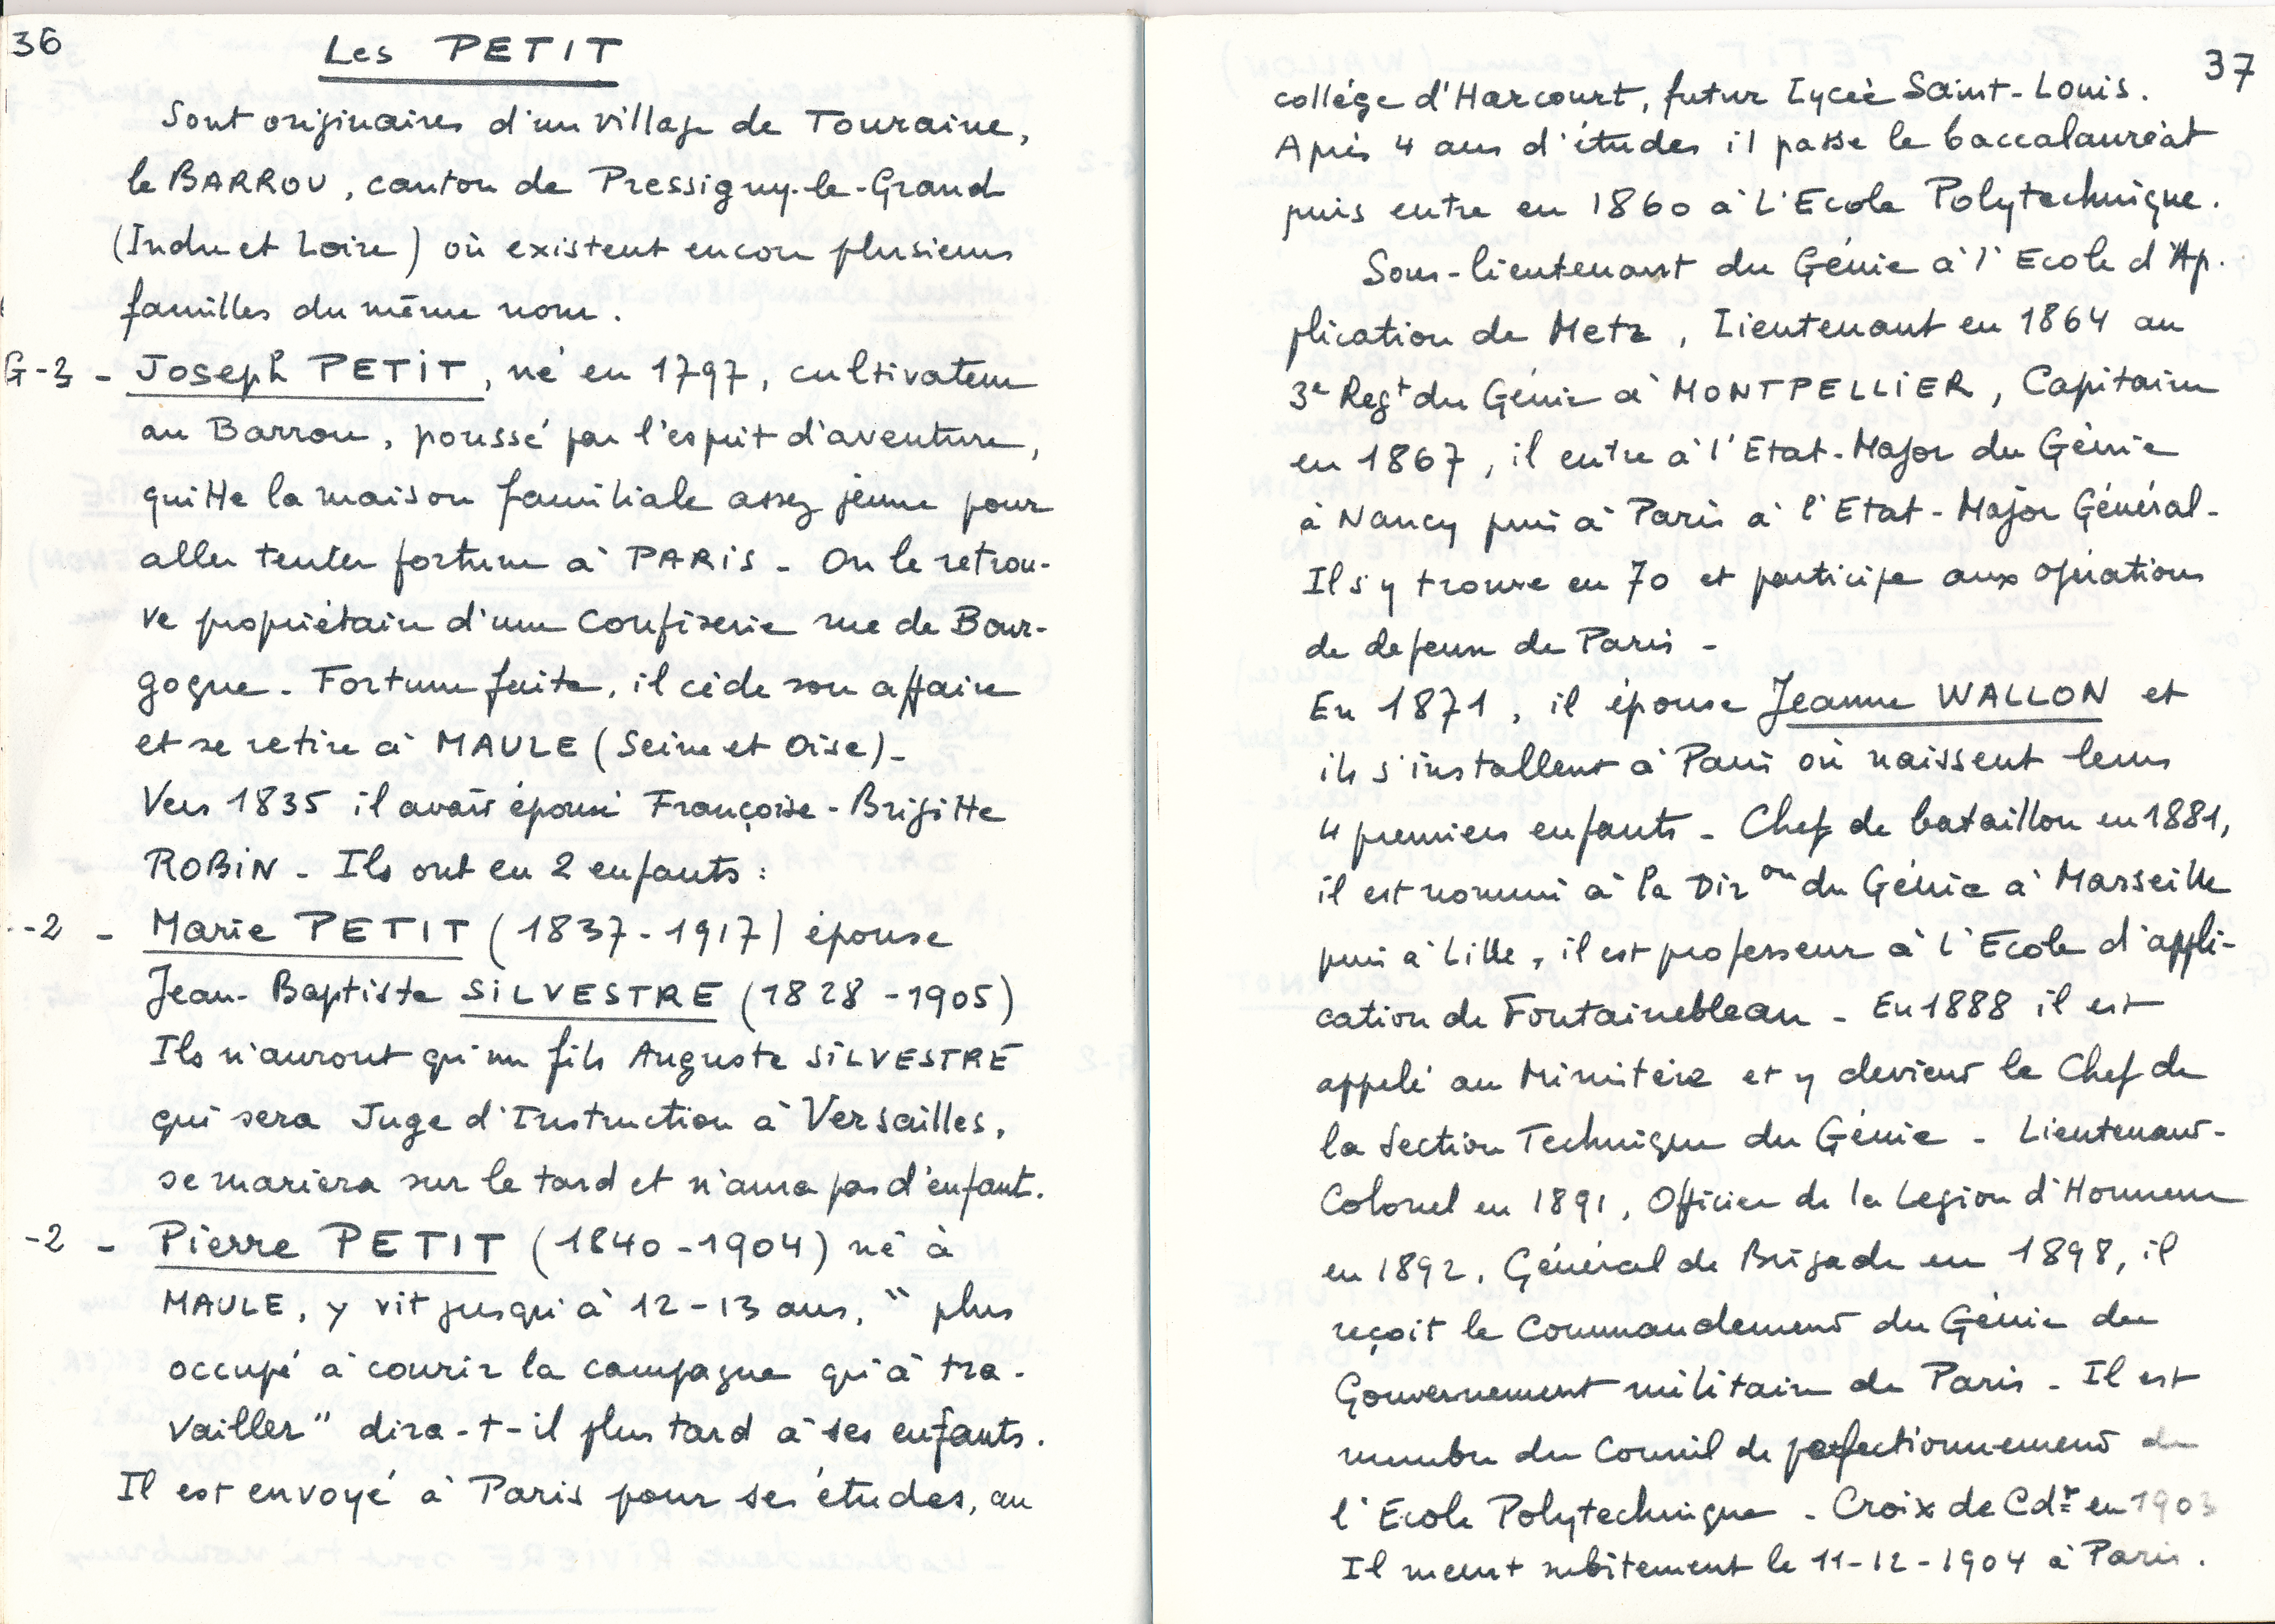 36
Les PETIT
Sont originaires d'un village de Touraine,
le BARROU, canton de Pressigny-le-Grand
(Indre et Loire) où existent encore plusieurs
familles du même nom.
G-3 - Joseph PETIT, né en 1797, cultivateur
au Barrou, poussé par l'esprit d'aventure,
quitte la maison familiale assez jeune pour
aller tenter fortune à PARIS - On le retrou-
ve propriétaire d'une Confiserie rue de Bour-
gogne - Fortune faite, il cède son affaire
et se retire à MAULE (Seine et Oise) -
Vers 1835 il avait épousé Françoise-Brigitte
ROBIN - Ils ont eu 2 enfants :
-2 - Marie PETIT (1837-1917) épouse
Jean-Baptiste SILVESTRE (1828-1905)
Ils n'auront qu'un fils Auguste SILVESTRE
qui sera Juge d'Instruction à Versailles,
se mariera sur le tard et n'aura pas d'enfant.
-2 - Pierre PETIT (1840-1904) né à
MAULE, y vit jusqu'à 12-13 ans, " plus
occupé à courir la campagne qu'à tra-
vailler" dira-t-il plus tard à ses enfants.
Il est envoyé à Paris pour ses études, au
37
collège d'Harcourt, futur Lycée Saint-Louis.
Après 4 ans d'études il passe le baccalauréat
puis entre en 1860 à l'Ecole Polytechnique.
Sous-lieutenant du Génie à l'Ecole d'Ap-
plication de Metz, Lieutenant en 1864 au
3e Regt du Génie à MONTPELLIER, Capitaine
en 1867, il entre à l'Etat-Major du Génie
à Nancy puis à Paris à l'Etat-Major Général -
Il s'y trouve en 70 et participe aux opérations
de defense de Paris -
En 1871, il épouse Jeanne WALLON et
ils s'installent à Paris où naissent leurs
4 premiers enfants - Chef de bataillon en 1881,
il est nommé à la Dir on du Génie à Marseille
puis à Lille, il est professeur à l'Ecole d'appli-
cation de Fontainebleau - En 1888 il est
appelé au Ministère et y devient le Chef de
la Section Technique du Génie - Lieutenant-
Colonel en 1891, Officier de la Legion d'Honneur
en 1892, Général de Brigade en 1898, il
reçoit le Commandement du Génie du
Gouvernement militaire de Paris - Il est
membre du Conseil de perfectionnement de
l'Ecole Polytechnique - Croix de Cdr en 1903
Il meurt subitement le 11-12-1904 à Paris.